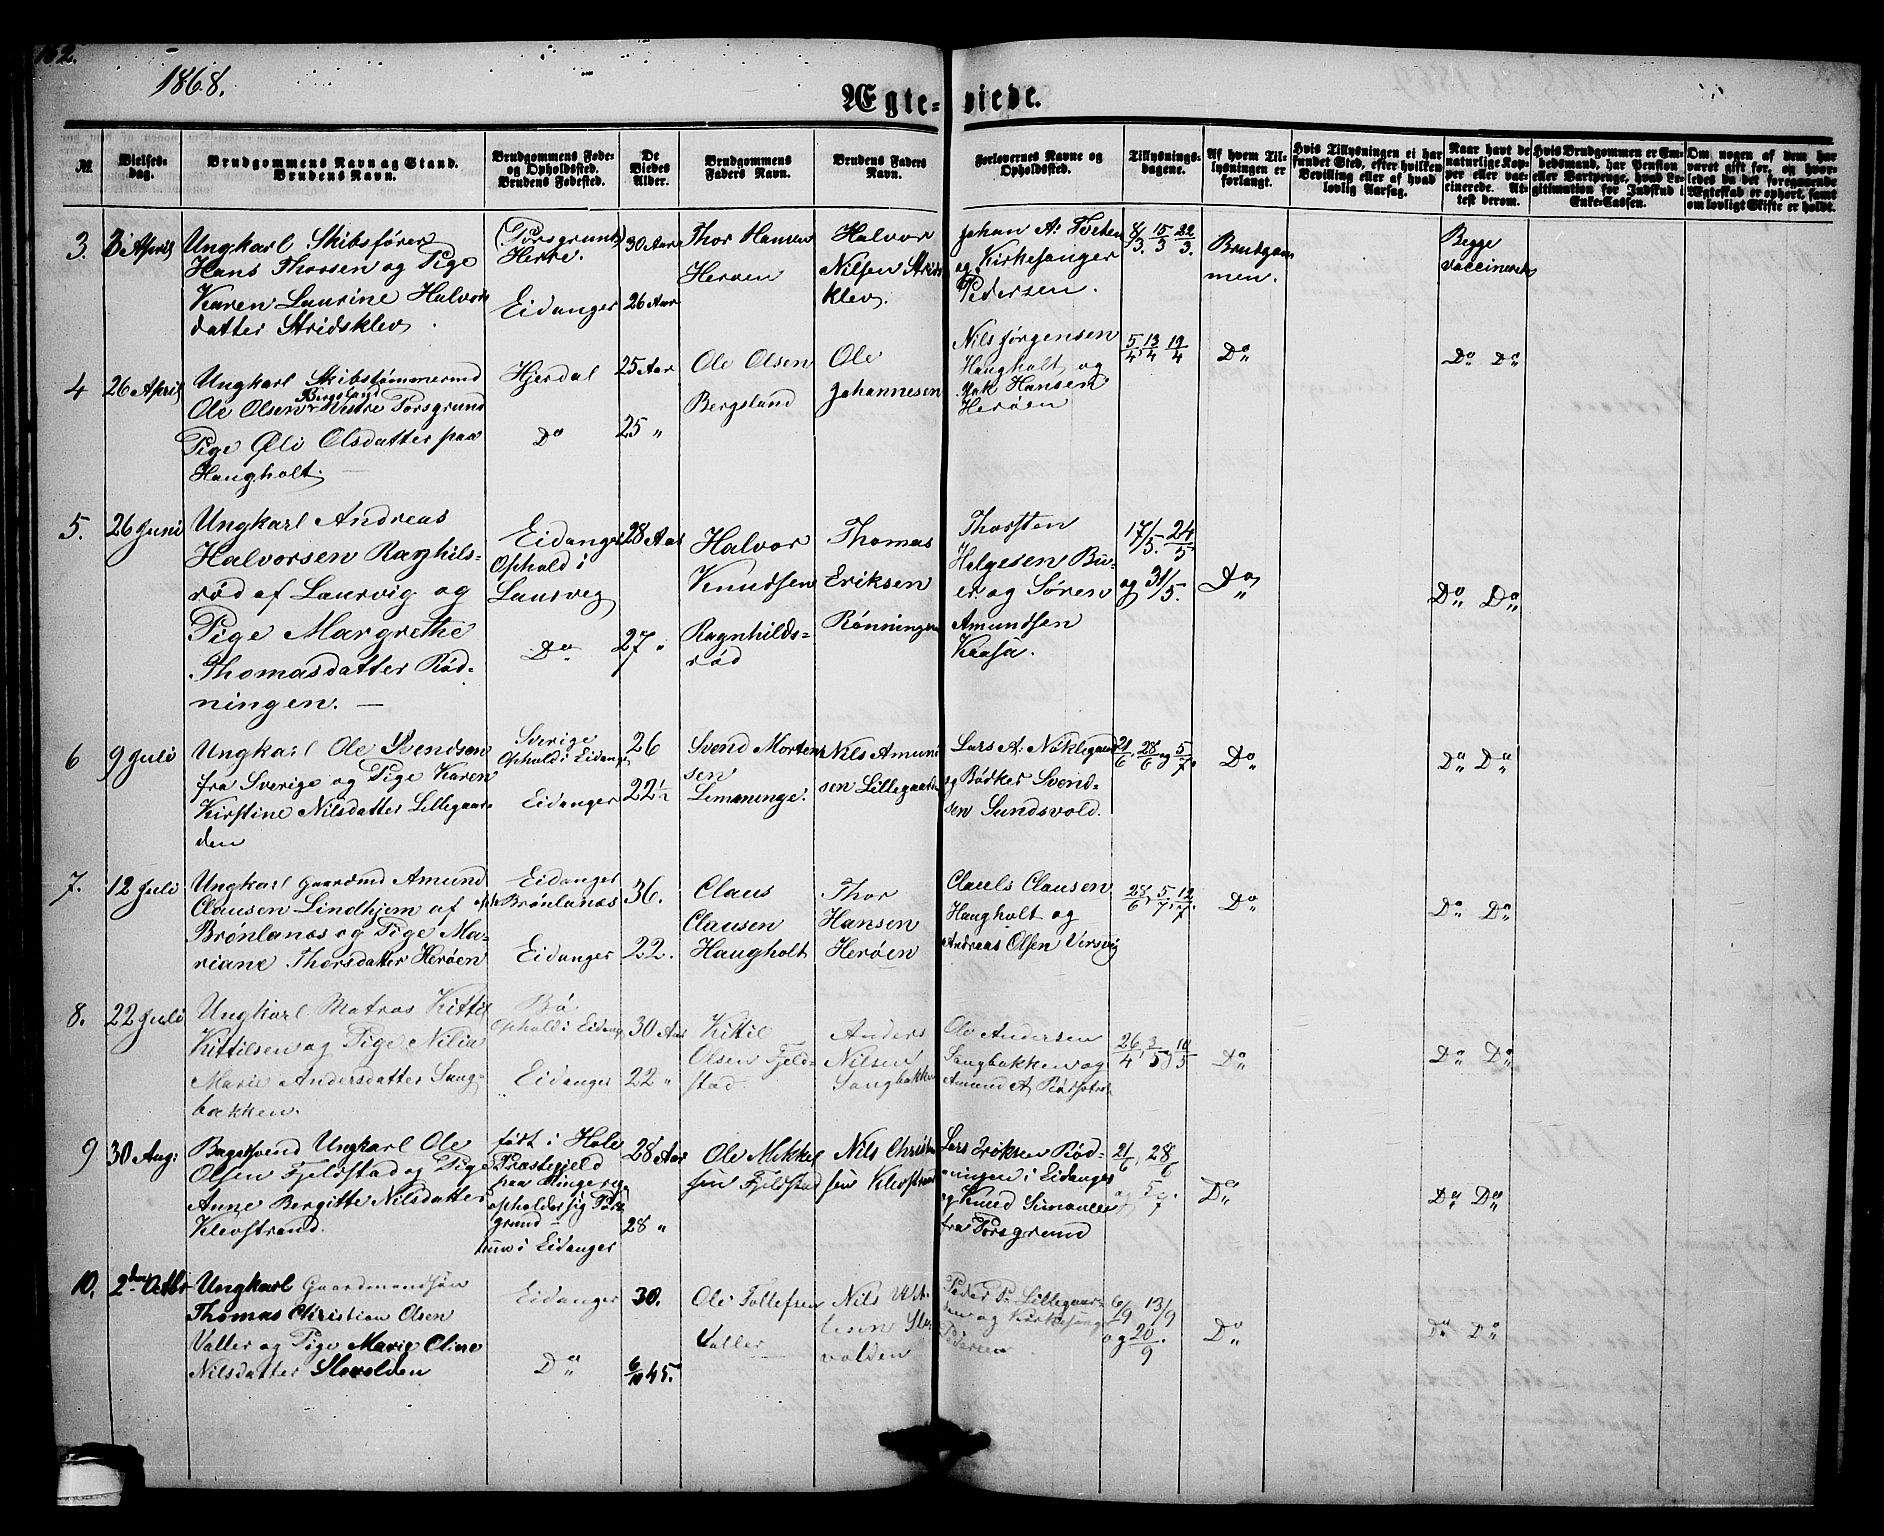 162.
1868.
Ægte-viede.
№
Vielses-
dag.
Brudgommens Navn og Stand.
Brudens Navn.
Brudgommens Føde-
og Opholdssted.
Brudens Fødested.
De
Viedes
Alder.
Brudgommens
Faders Navn.
Brudens Faders
Navn.
Forlovernes Navne og
Opholdssted.
Tillysnings-
dagene.
Af hvem Til-
lysningen er
forlangt.
Hvis Tillysningen ei har
fundet Sted, efter hvilken
Bevilling eller af hvad
lovlig Aarsag.
Naar havt de
naturlige Kop-
per eller vac-
cinerede. At-
test derom.
Hvis Brudgommen er Em-
bedsmand, har Pension
eller Vartpenge, hvad Le-
gitimation for Indskud i
Enke-Cassen.
Om nogen af dem har
været gift før, og hvor-
ledes da det foregaaende
Ægteskab er ophørt, samt
om lovligt Skifte er holdt.
3. 3 April
Ungkarl Skibsfører
Hans Thorsen og Pige
Karen Laurine Halvors
datter Stridsklev
Porsgrund
Herre.
Eidanger
30 Aar
26 Aar
Thor Hansen
Herøen
Halvor
Nilsen Strids
klev.
Johan A. Tveten
og Kirkesanger
Pedersen.
8/3. 15/3 22/3.
Brudgom
men.
Begge
vaccinerede
4 26 April
Ungkarl Skibstømmermd
Bergsland
Ole Olsen Vestre Porsgrund
Pige Øli Olsdatter paa
Haugholt.
Hjerdal
Do
25 Aar
25 "
Ole Olsen
Bergsland
Ole
Johannesen
Nils Jørgensen
Haugholt og
Hansen
Herøen
5/4 13/4 19/4
Do
Do Do
5. 26 Juni
Ungkarl Andreas
Halvorsen Ragnhils-
rød af Laurvig og
Pige Margrethe
Thomasdatter Rød-
ningen.
Eidanger
Ophold i
Laurvig
Do
28 Aar
27 "
Halvor
Knudsen
Ragnhilds-
rød
Thomas
Eriksen
Rønningen
Thorsten
Helgesen Bu-
er og Søren
Amundsen
Kaasa.
17/5. 24/5
og 31/5.
Do
Do Do
6 9 Juli
Ungkarl Ole Svendsen
fra Sverige og Pige Karen
Kirstine Nilsdatter Lillegaar-
den
Sverige
Ophold i Eidanger
Eidanger
26
22½
Svend Morten
sen
Limaninge.
Nils Amund
sen Lillegaarden
Lars A. Nøklegaard
og Bødker Svend-
sen Sundsvold.
21/6, 28/6 og 5/7.
Do
Do Do
7. 12 Juli
Ungkarl Gaardmd Amund
Clausen Lindhjem af
Brønlanæs og Pige Ma-
riane Thorsdatter Herøen
Eidanger
oph Brønlanæs
Eidanger
36.
22.
Claus
Clausen
Haugholt
Thor
Hansen
Herøen
Clauls Clausen
Haugholt og
Andreas Olsen Versvig
28/6, 5/7, 12/7.
Do
Do Do
8. 22 Juli
Ungkarl Matros Kittil
Kittilsen og Pige Nilia
Marie Andersdatter Sang-
bakken.
Bø
Ophold i Eidanger
Eidanger
30 Aar
22 "
Kittil
Olsen Fjeld-
stad.
Anders
Nilsen
Sangbakken
Ole Andersen
Sangbakken og
Amund A.
26/4, 3/5 og 10/5
Do
Do Do
9 30 Aug:
Bagersvend Ungkarl Ole
Olsen Fjeldstad og Pige
Anne Bergitte Nilsdatter
Klevstrand.
født i Hole
Præstegjeld
paa Ringerig
opholder sig Pors
grund -
hun i Eidanger
28 Aar
28 "
Ole Mikkel
sen Fjeldstad
Nils Christen
sen Klevstrand
Lars Eriksen Rød-
ningen i Eidanger
og Knud Simonsen
fra Porsgrund
21/6, 28/6
og 5/7.
Do
Do Do
10. 2den Octbr
Ungkarl Gaardmandssøn
Thomas Christian Olsen
Valler og Pige Marie Oline
Nilsdatter Slovolden
Eidanger
Do
30.
6/10 45.
Ole Tollefsen
Valler
Nils
Slo-
volden
Peder P. Lillegaar-
den og Kirkesanger
Pedersen
6/9 13/9
og 20/9.
Do
Do Do